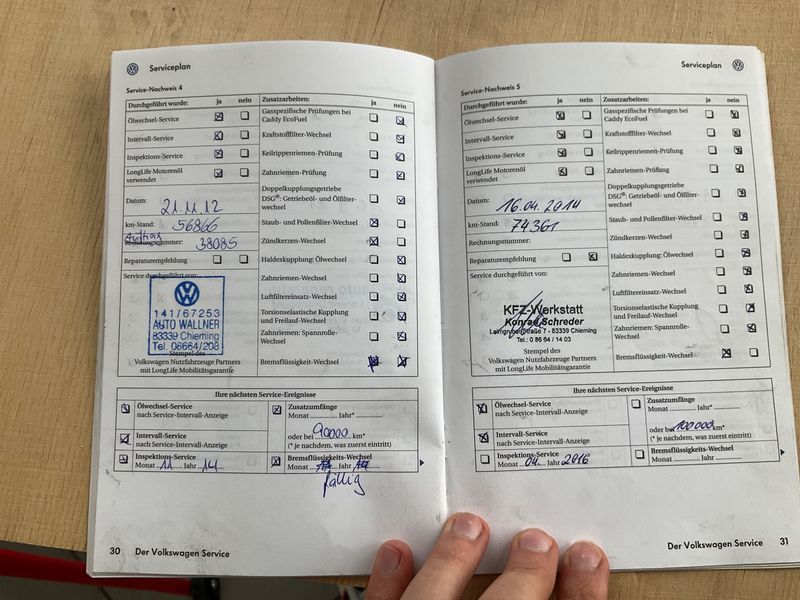 Serviceplan
Service-Nachweis 4
Durchgeführt wurde: ja nein
Ölwechsel-Service
Intervall-Service
Inspektions-Service
LongLife Motorenöl
verwendet
Datum: 21.11.12
km-Stand: 56866
Rechnungsnummer: 38085
Reparaturempfehlung
Service durchgeführt von:
141/67253
AUTO WALLNER
83339 Chieming
Tel. 08664/208
Stempel des
Volkswagen Nutzfahrzeuge Partners
mit LongLife Mobilitätsgarantie
Zusatzarbeiten: ja nein
Gasspezifische Prüfungen bei
Caddy EcoFuel
Kraftstofffilter-Wechsel
Keilrippenriemen-Prüfung
Zahnriemen-Prüfung
Doppelkupplungsgetriebe
DSG®: Getriebeöl- und Ölfilter-
wechsel
Staub- und Pollenfilter-Wechsel
Zündkerzen-Wechsel
Haldexkupplung: Ölwechsel
Zahnriemen-Wechsel
Luftfiltereinsatz-Wechsel
Torsionselastische Kupplung
und Freilauf-Wechsel
Zahnriemen: Spannrolle-
Wechsel
Bremsflüssigkeit-Wechsel
Ihre nächsten Service-Ereignisse
Ölwechsel-Service
nach Service-Intervall-Anzeige
Intervall-Service
nach Service-Intervall-Anzeige
Inspektions-Service
Monat 11 Jahr 14
Zusatzumfänge
Monat ............ Jahr* ............
oder bei 90000 km*
(* je nachdem, was zuerst eintritt)
Bremsflüssigkeits-Wechsel
Monat Jahr
fällig
30 Der Volkswagen Service
Serviceplan
Service-Nachweis 5
Durchgeführt wurde: ja nein
Ölwechsel-Service
Intervall-Service
Inspektions-Service
LongLife Motorenöl
verwendet
Datum: 16.04.2014
km-Stand: 74361
Rechnungsnummer:
Reparaturempfehlung
Service durchgeführt von:
KFZ-Werkstatt
Konrad Schreder
straße 7 - 83339 Chieming
Tel.: 0 86 64 / 14 03
Stempel des
Volkswagen Nutzfahrzeuge Partners
mit LongLife Mobilitätsgarantie
Zusatzarbeiten: ja nein
Gasspezifische Prüfungen bei
Caddy EcoFuel
Kraftstofffilter-Wechsel
Keilrippenriemen-Prüfung
Zahnriemen-Prüfung
Doppelkupplungsgetriebe
DSG®: Getriebeöl- und Ölfilter-
wechsel
Staub- und Pollenfilter-Wechsel
Zündkerzen-Wechsel
Haldexkupplung: Ölwechsel
Zahnriemen-Wechsel
Luftfiltereinsatz-Wechsel
Torsionselastische Kupplung
und Freilauf-Wechsel
Zahnriemen: Spannrolle-
Wechsel
Bremsflüssigkeit-Wechsel
Ihre nächsten Service-Ereignisse
Ölwechsel-Service
nach Service-Intervall-Anzeige
Intervall-Service
nach Service-Intervall-Anzeige
Inspektions-Service
Monat 04 Jahr 2016
Zusatzumfänge
Monat ............ Jahr* ............
oder bei 100000 km*
(* je nachdem, was zuerst eintritt)
Bremsflüssigkeits-Wechsel
Monat ............ Jahr ............
Der Volkswagen Service 31